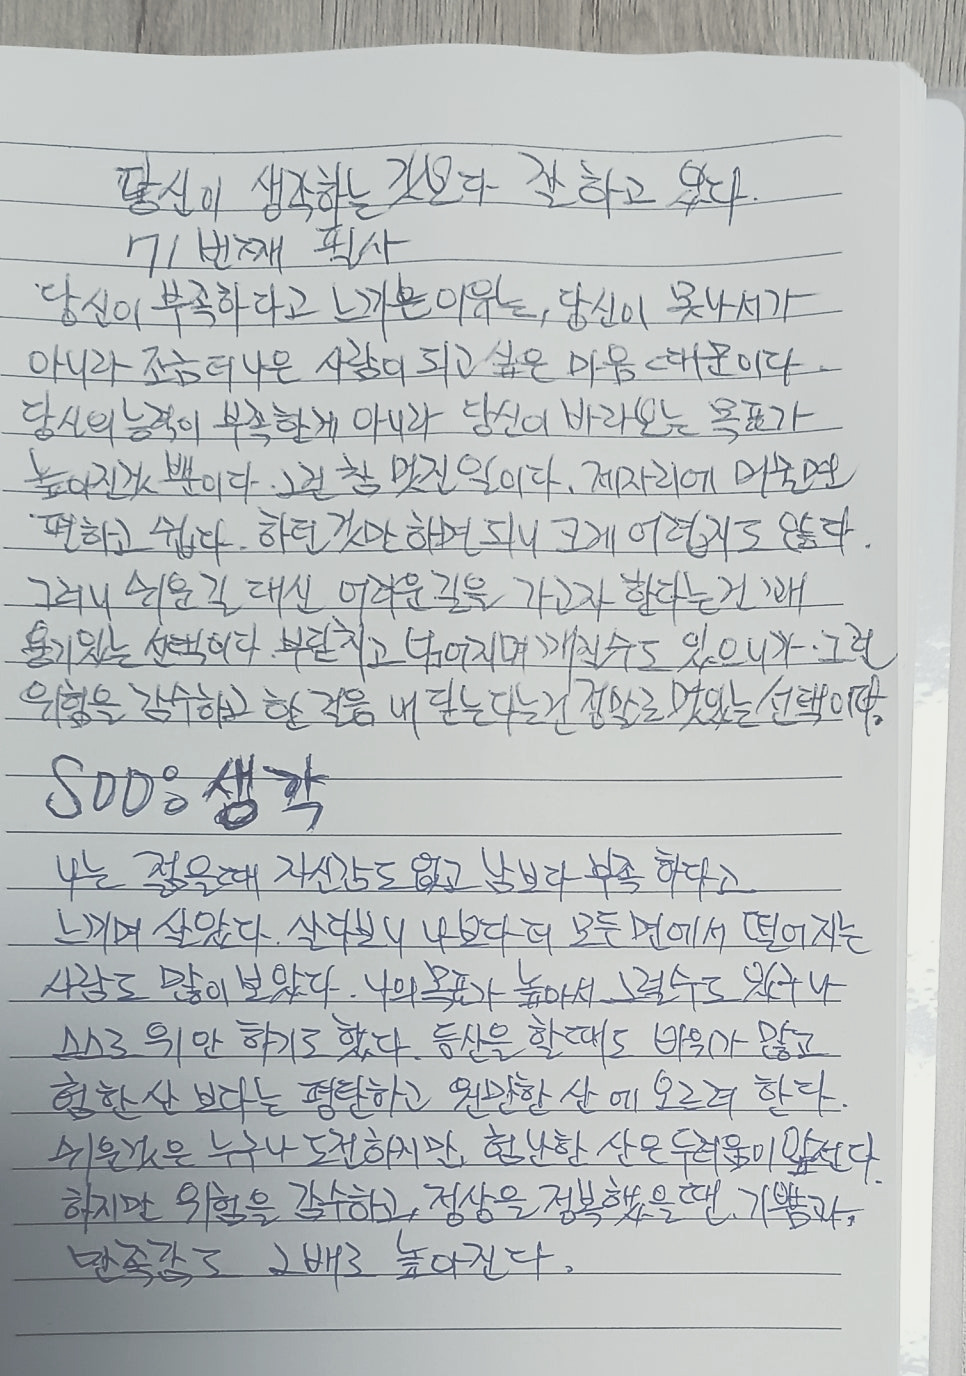 당신이 생각하는 것보다 잘하고 있다.
71번째 필사
당신이 부족하다고 느끼는 이유는, 당신이 못나서가
아니라 조금 더 나은 사람이 되고 싶은 마음 때문이다.
당신의 능력이 부족한게 아니라 당신이 바라보는 목표가
높아진것 뿐이다. 그건 참 멋진 일이다. 제자리에 머물면
편하고 쉽다. 하던 것만 하면 되니 크게 어렵지도 않다.
그러니 쉬운 길 대신 어려운 길을 가고자 한다는건 꽤
용기있는 선택이다. 부딪치고 넘어지며 깨질수도 있으니까. 그런
위험을 감수하고 한 걸음 내딛는다는건 정말로 멋있는 선택이다.
SOO응 생각
나는 젊을때 자신감도 없고 남보다 부족하다고
느끼며 살았다. 살다보니 나보다 더 모든 면에서 떨어지는
사람도 많이 보았다. 나의 목표가 높아서 그럴수도 있구나
스스로 위안 하기도 했다. 등산을 할때도 바위가 많고
험한산 보다는 평탄하고 원만한 산에 오르려 한다.
쉬운것은 누구나 도전하지만, 험난한 산은 두려움이 앞선다.
하지만 위험을 감수하고, 정상을 정복했을 땐, 기쁨과,
만족감도 2배로 높아진다.